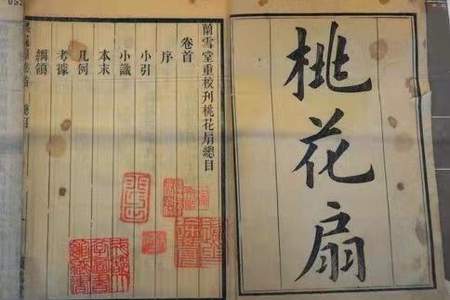 桃花扇
蘭雪堂重校刊桃花扇總目
卷首
序
小引
小識
本末
凡例
考據
綱領